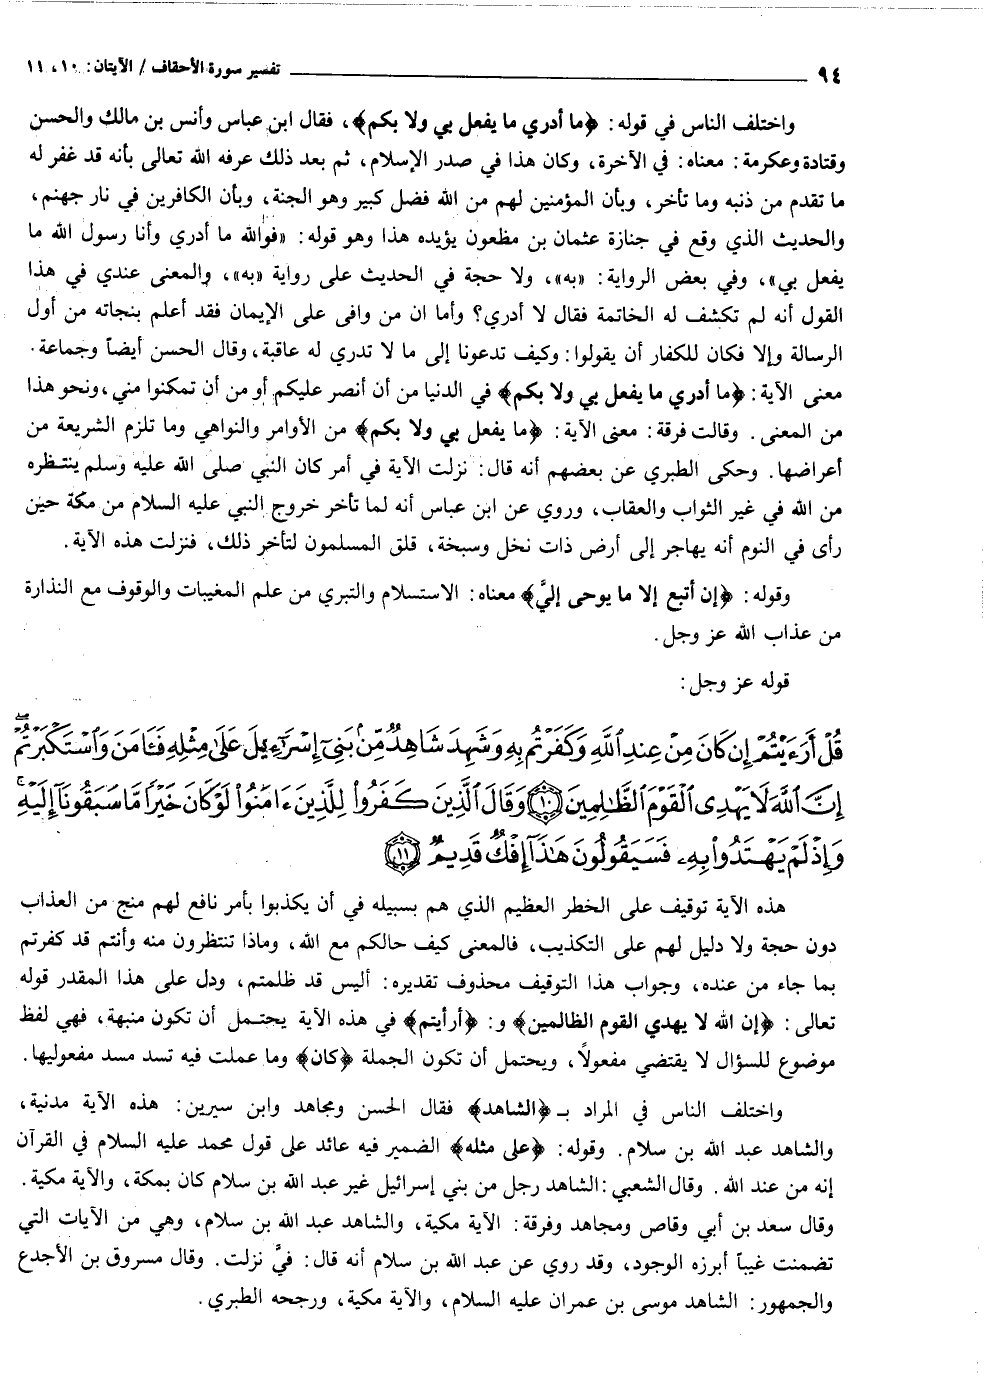 ٩٤ تفسير سورة الأحقاف / الآيتان: ١٠، ١١
واختلف الناس في قوله: ﴿ما أدري ما يفعل بي ولا بكم﴾، فقال ابن عباس وأنس بن مالك والحسن
وقتادة وعكرمة: معناه: في الآخرة، وكان هذا في صدر الإسلام، ثم بعد ذلك عرفه الله تعالى بأنه قد غفر له
ما تقدم من ذنبه وما تأخر، وبأن المؤمنين لهم من الله فضل كبير وهو الجنة، وبأن الكافرين في نار جهنم،
والحديث الذي وقع في جنازة عثمان بن مظعون يؤيده هذا وهو قوله: «فوالله ما أدري وأنا رسول الله ما
يفعل بي»، وفي بعض الرواية: «به»، ولا حجة في الحديث على رواية «به»، والمعنى عندي في هذا
القول أنه لم تكشف له الخاتمة فقال لا أدري؟ وأما ان من وافى على الإيمان فقد أعلم بنجاته من أول
الرسالة وإلا فكان للكفار أن يقولوا: وكيف تدعونا إلى ما لا تدري له عاقبة، وقال الحسن أيضاً وجماعة.
معنى الآية: ﴿ما أدري ما يفعل بي ولا بكم﴾ في الدنيا من أن أنصر عليكم أو من أن تمكنوا مني، ونحو هذا
من المعنى. وقالت فرقة: معنى الآية: ﴿ما يفعل بي ولا بكم﴾ من الأوامر والنواهي وما تلزم الشريعة من
أعراضها. وحكى الطبري عن بعضهم أنه قال: نزلت الآية في أمر كان النبي صلى الله عليه وسلم ينتظره
من الله في غير الثواب والعقاب، وروي عن ابن عباس أنه لما تأخر خروج النبي عليه السلام من مكة حين
رأى في النوم أنه يهاجر إلى أرض ذات نخل وسبخة، قلق المسلمون لتأخر ذلك، فنزلت هذه الآية.
وقوله: ﴿إن أتبع إلا ما يوحى إليَّ﴾ معناه: الاستسلام والتبري من علم المغيبات والوقوف مع النذارة
من عذاب الله عز وجل.
قوله عز وجل:
قُلْ أَرَءَيْتُمْ إِن كَانَ مِنْ عِندِ ٱللَّهِ وَكَفَرْتُم بِهِ وَشَهِدَ شَاهِدٌ مِّنۢ بَنِيٓ إِسْرَٰٓءِيلَ عَلَىٰ مِثْلِهِ فَـَٔامَنَ وَٱسْتَكْبَرْتُمْ ۖ
إِنَّ ٱللَّهَ لَا يَهْدِى ٱلْقَوْمَ ٱلظَّٰلِمِينَ ۝١٠ وَقَالَ ٱلَّذِينَ كَفَرُوا۟ لِلَّذِينَ ءَامَنُوا۟ لَوْ كَانَ خَيْرًا مَّا سَبَقُونَآ إِلَيْهِ ۚ
وَإِذْ لَمْ يَهْتَدُوا۟ بِهِۦ فَسَيَقُولُونَ هَٰذَآ إِفْكٌ قَدِيمٌ ۝١١
هذه الآية توقيف على الخطر العظيم الذي هم بسبيله في أن يكذبوا بأمر نافع لهم منج من العذاب
دون حجة ولا دليل لهم على التكذيب، فالمعنى كيف حالكم مع الله، وماذا تنتظرون منه وأنتم قد كفرتم
بما جاء من عنده، وجواب هذا التوقيف محذوف تقديره: أليس قد ظلمتم، ودل على هذا المقدر قوله
تعالى: ﴿إن الله لا يهدي القوم الظالمين﴾ و: ﴿أرأيتم﴾ في هذه الآية يحتمل أن تكون منبهة، فهي لفظ
موضوع للسؤال لا يقتضي مفعولاً، ويحتمل أن تكون الجملة ﴿كان﴾ وما عملت فيه تسد مسد مفعوليها.
واختلف الناس في المراد بـ ﴿الشاهد﴾ فقال الحسن ومجاهد وابن سيرين: هذه الآية مدنية،
والشاهد عبد الله بن سلام. وقوله: ﴿على مثله﴾ الضمير فيه عائد على قول محمد عليه السلام في القرآن
إنه من عند الله. وقال الشعبي: الشاهد رجل من بني إسرائيل غير عبد الله بن سلام كان بمكة، والآية مكية.
وقال سعد بن أبي وقاص ومجاهد وفرقة: الآية مكية، والشاهد عبد الله بن سلام، وهي من الآيات التي
تضمنت غيباً أبرزه الوجود، وقد روي عن عبد الله بن سلام أنه قال: فيَّ نزلت. وقال مسروق بن الأجدع
والجمهور: الشاهد موسى بن عمران عليه السلام، والآية مكية، ورجحه الطبري.